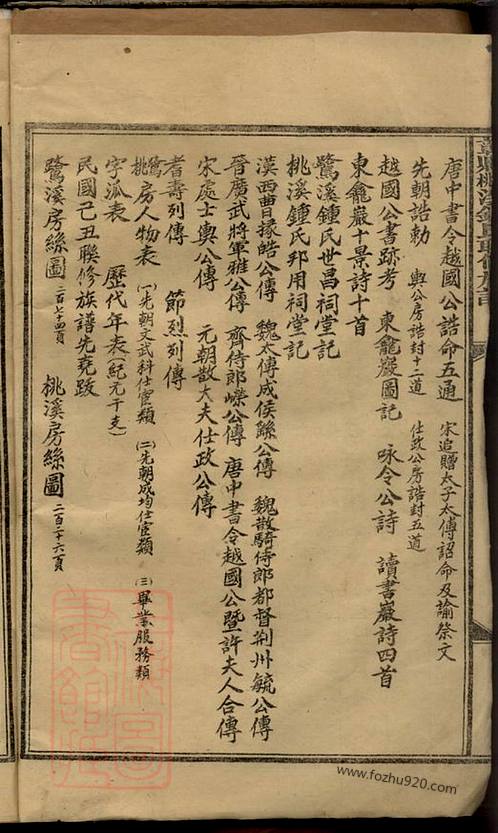 唐中書令越國公誥命五通　宋追贈太子太傅詔命及諭祭文
先朝誥勅　輿公房誥封十二道　仕政公房誥封五道
越國公書跡考　東龕巖圖記　咏令公詩　讀書巖詩四首
東龕巖十景詩十首
鷺溪鍾氏世昌祠堂記
桃溪鍾氏邦用祠堂記
漢西曹掾皓公傳　魏太傅成侯繇公傳　魏散騎侍郎都督荆州毓公傳
晉廣武將軍雅公傳　齊侍郎嶸公傳　唐中書令越國公暨許夫人合傳
宋處士輿公傳　元朝散大夫仕政公傳
耆壽列傳　節烈列傳
鷺桃房人物表　(一)先朝文武科仕宦類　(二)先朝成均仕宦類　(三)畢業服務類
字派表　歷代年表(紀元干支)
民國己丑聯修族譜先堯跋
鷺溪房絲圖　二百七十四頁　桃溪房絲圖　二百二十六頁
www.fozhu920.com